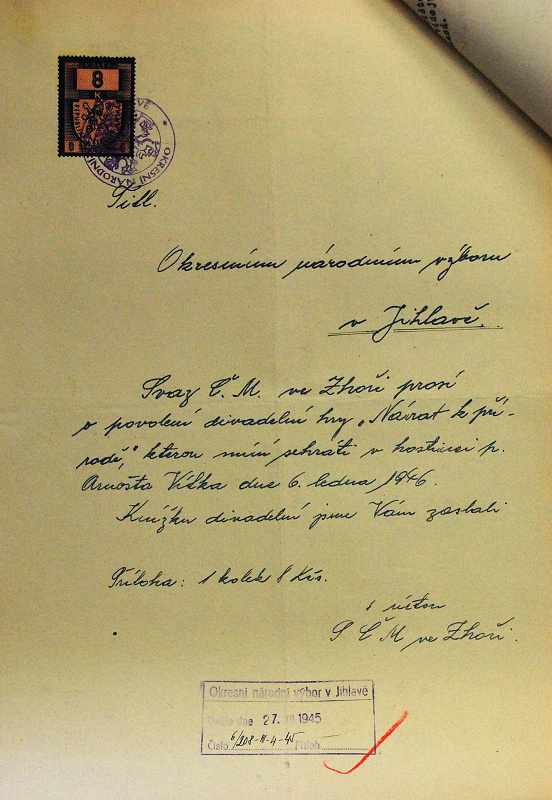 KOLEK
8
K
OKRESNÍ NÁRODNÍ
Titl.
Okresnímu národnímu výboru
v Jihlavě.
Svaz Č. M. ve Zhoři prosí
o povolení divadelní hry „Návrat k pří-
rodě," kterou míní sehráti v hostinci p.
Arnošta Vítka dne 6. ledna 1946.
Knížku divadelní jsme Vám zaslali
Příloha: 1 kolek 8 Kčs.
s úctou
S Č M ve Zhoři.
Okresní národní výbor v Jihlavě
Došlo dne 27. 1945
Číslo 6/208-III-4-45 Příloh